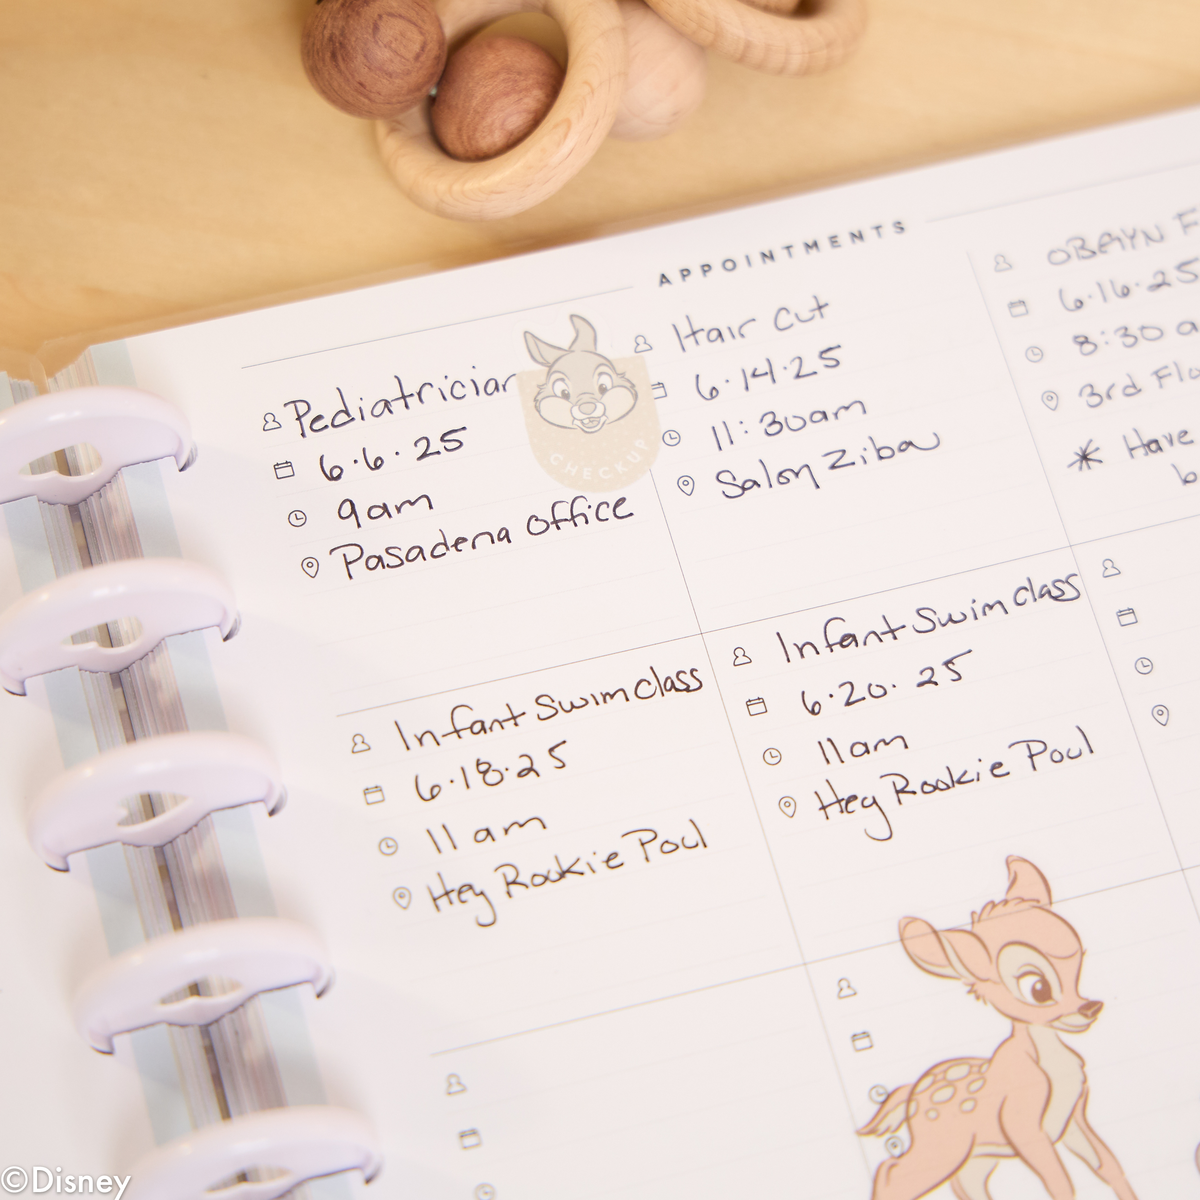 APPOINTMENTS
Pediatrician
6.6.25
9am
Pasadena office
CHECKUP
Hair cut
6.14.25
11:30am
Salon Ziba
OBGYN
6.16.25
8:30
3rd
* Have
Infant Swim class
6.18.25
11am
Hey Rookie Pool
Infant Swim class
6.20.25
11am
Hey Rookie Pool
©Disney